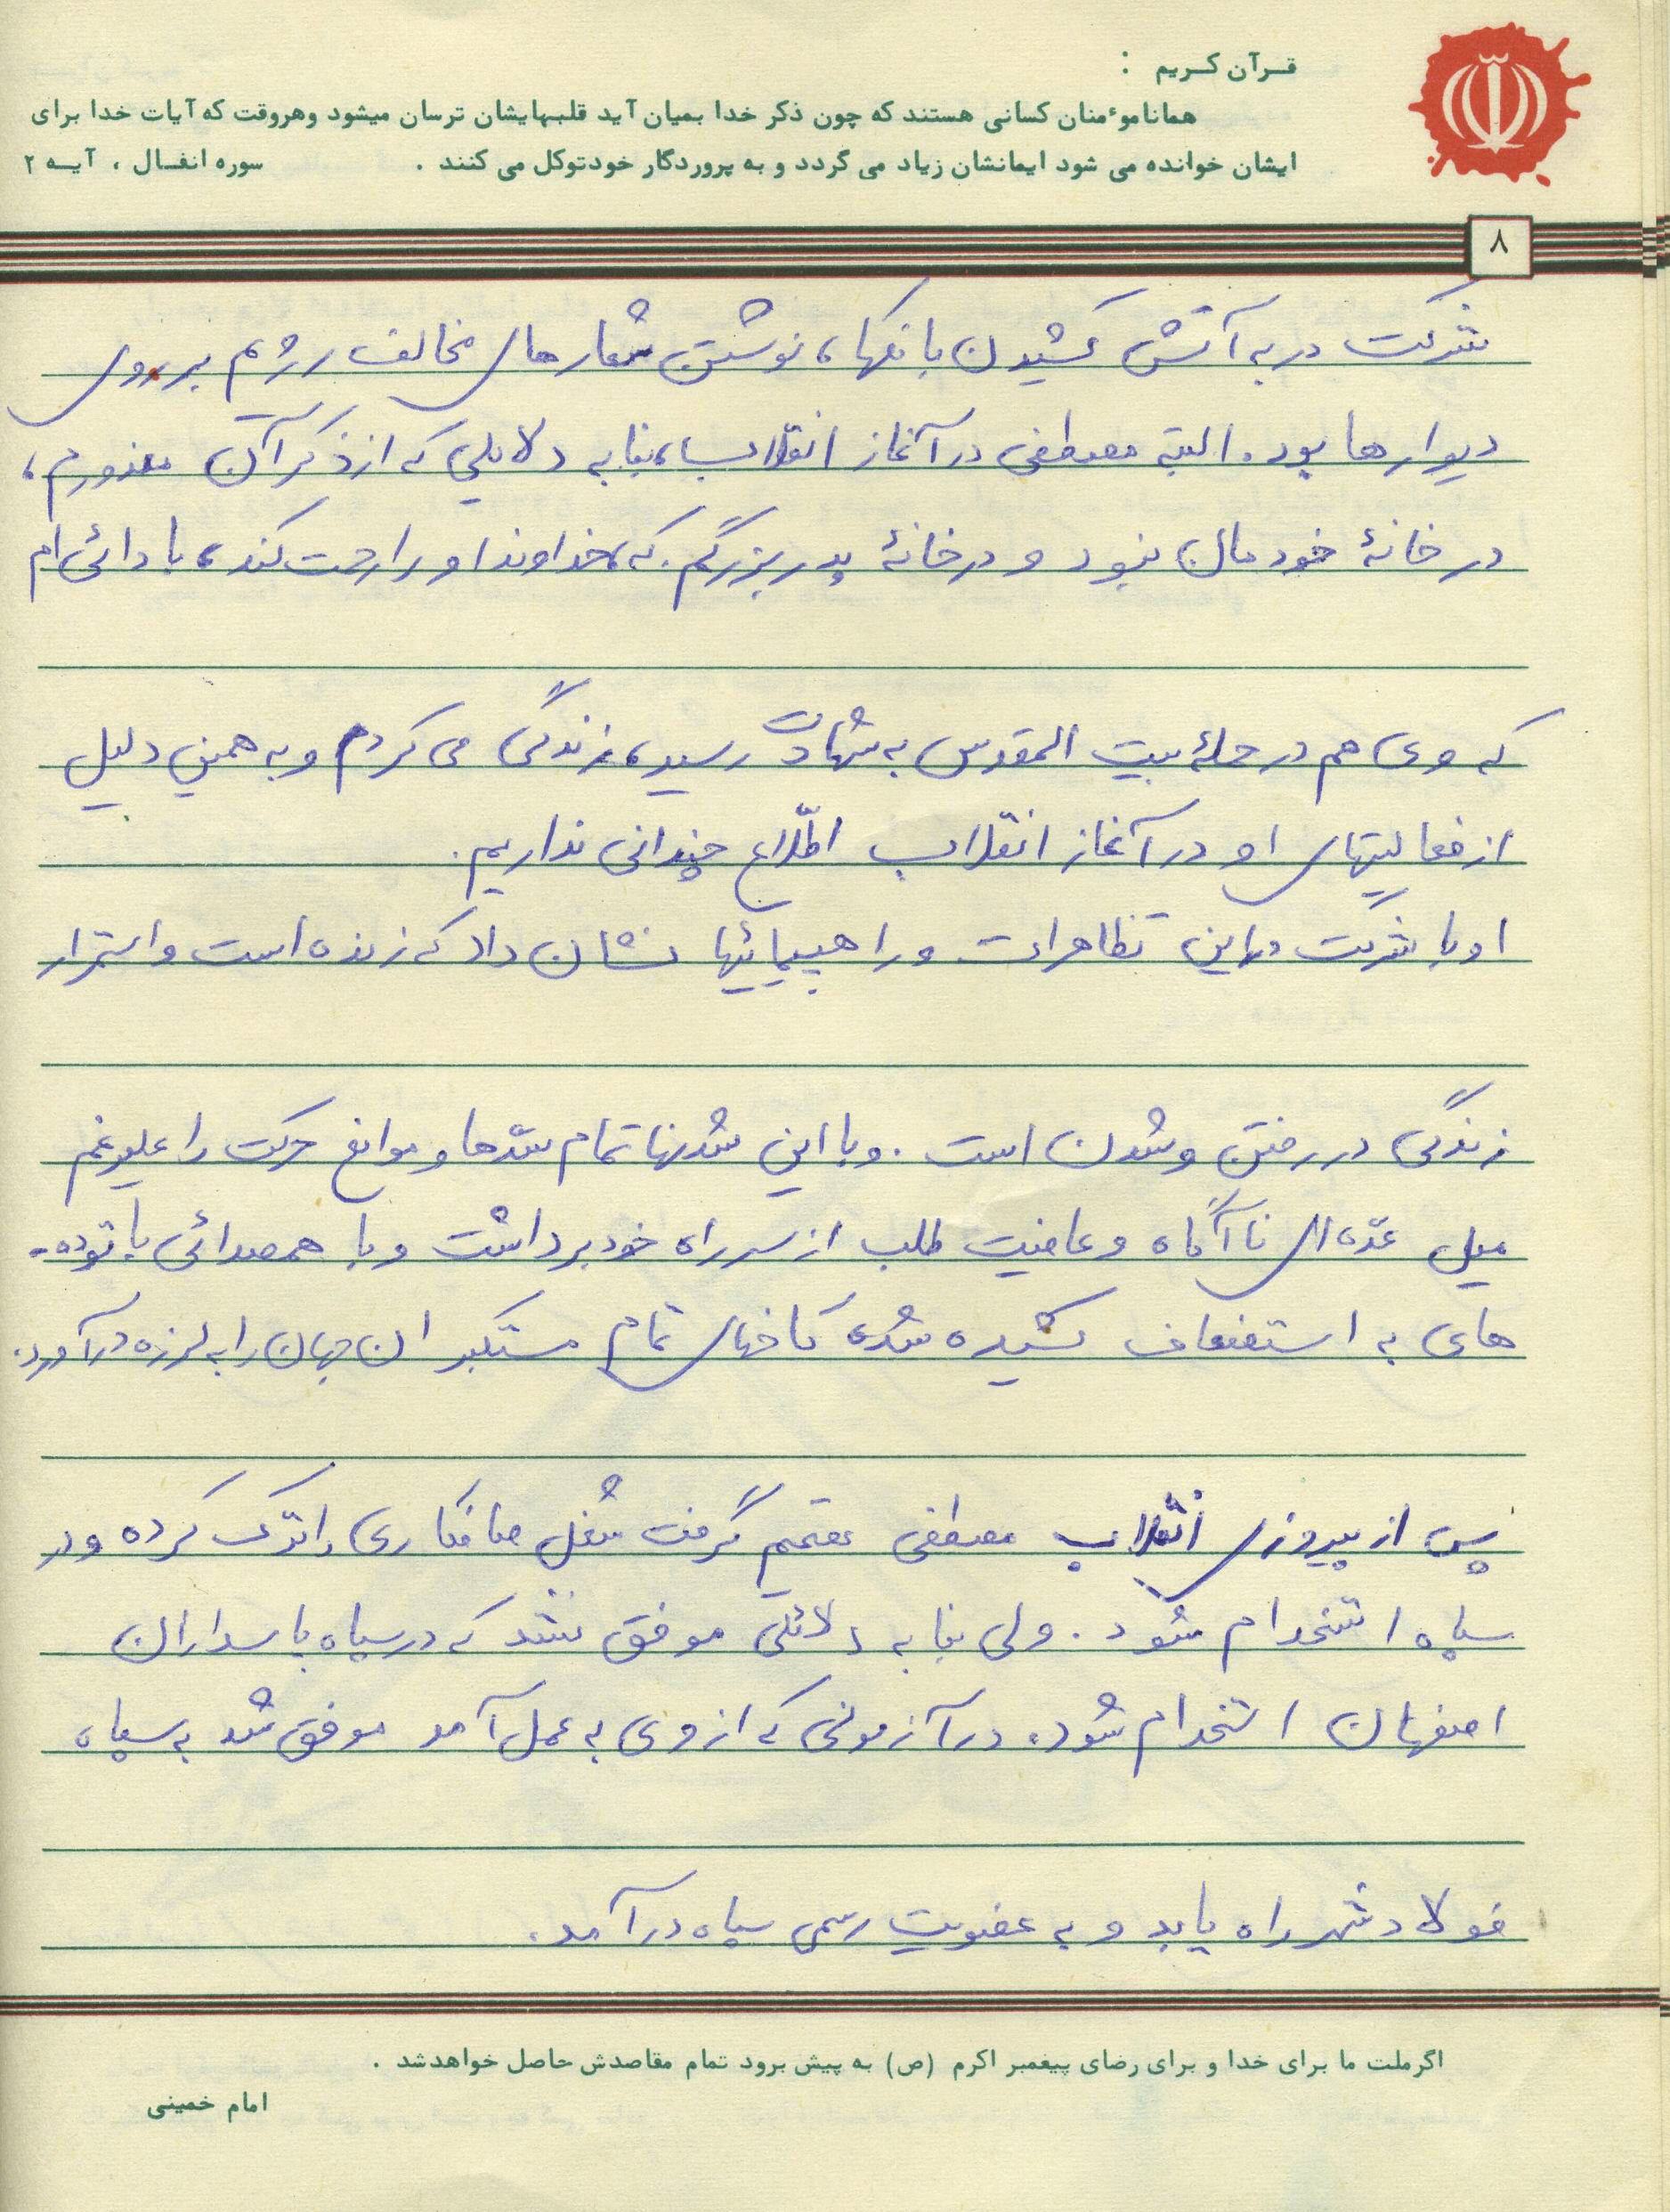 قـرآن کـریم :
همانامو ٔمنان کسانی هستند که چون ذکر خدا بمیان آید قلبهایشان ترسان میشود وهروقت که آیات خدا برای
ایشان خوانده می شود ایمانشان زیاد می گردد و به پروردگار خودتوکل می کنند . سوره انفـال ، آیـه ۲
۸
شرکت در به آتش کشیدن بانکها، نوشتن شعارهای مخالف رژیم بر روی
دیوارها بود. البته مصطفی در آغاز انقلاب، بنا به دلایلی که از ذکر آن معذورم،
در خانهٔ خودمان نبود و در خانهٔ پدر بزرگم. که، خداوند او را رحمت کند، با دائی ام
که وی هم در حملهٔ بیت المقدس به شهادت رسید، زندگی می کردم و به همین دلیل
از فعالیتهای او در آغاز انقلاب اطّلاع چندانی نداریم.
او با شرکت در این تظاهرات و راهپیمائیها نشان داد که زنده است و استمرار
زندگی در رفتن و شدن است. و با این شدنها تمام سدّها و موانع حرکت را علیرغم
میل عدّه ای ناآگاه و عافیت طلب از سر راه خود برداشت و با همصدائی با توده-
های به استضعاف کشیده شده کاخهای تمام مستکبران جهان را به لرزه درآورد.
پس از پیروزی انقلاب مصطفی تصمیم گرفت شغل صافکاری را ترک کرده و در
سپاه استخدام شود. ولی بنا به دلائلی موفق نشد که در سپاه پاسداران
اصفهان استخدام شود. در آزمونی که از وی به عمل آمد موفق شد به سپاه
فولادشهر راه یابد و به عضویت رسمی سپاه درآمد.
اگرملت ما برای خدا و برای رضای پیغمبر اکرم (ص) به پیش برود تمام مقاصدش حاصل خواهدشد .
امام خمینی